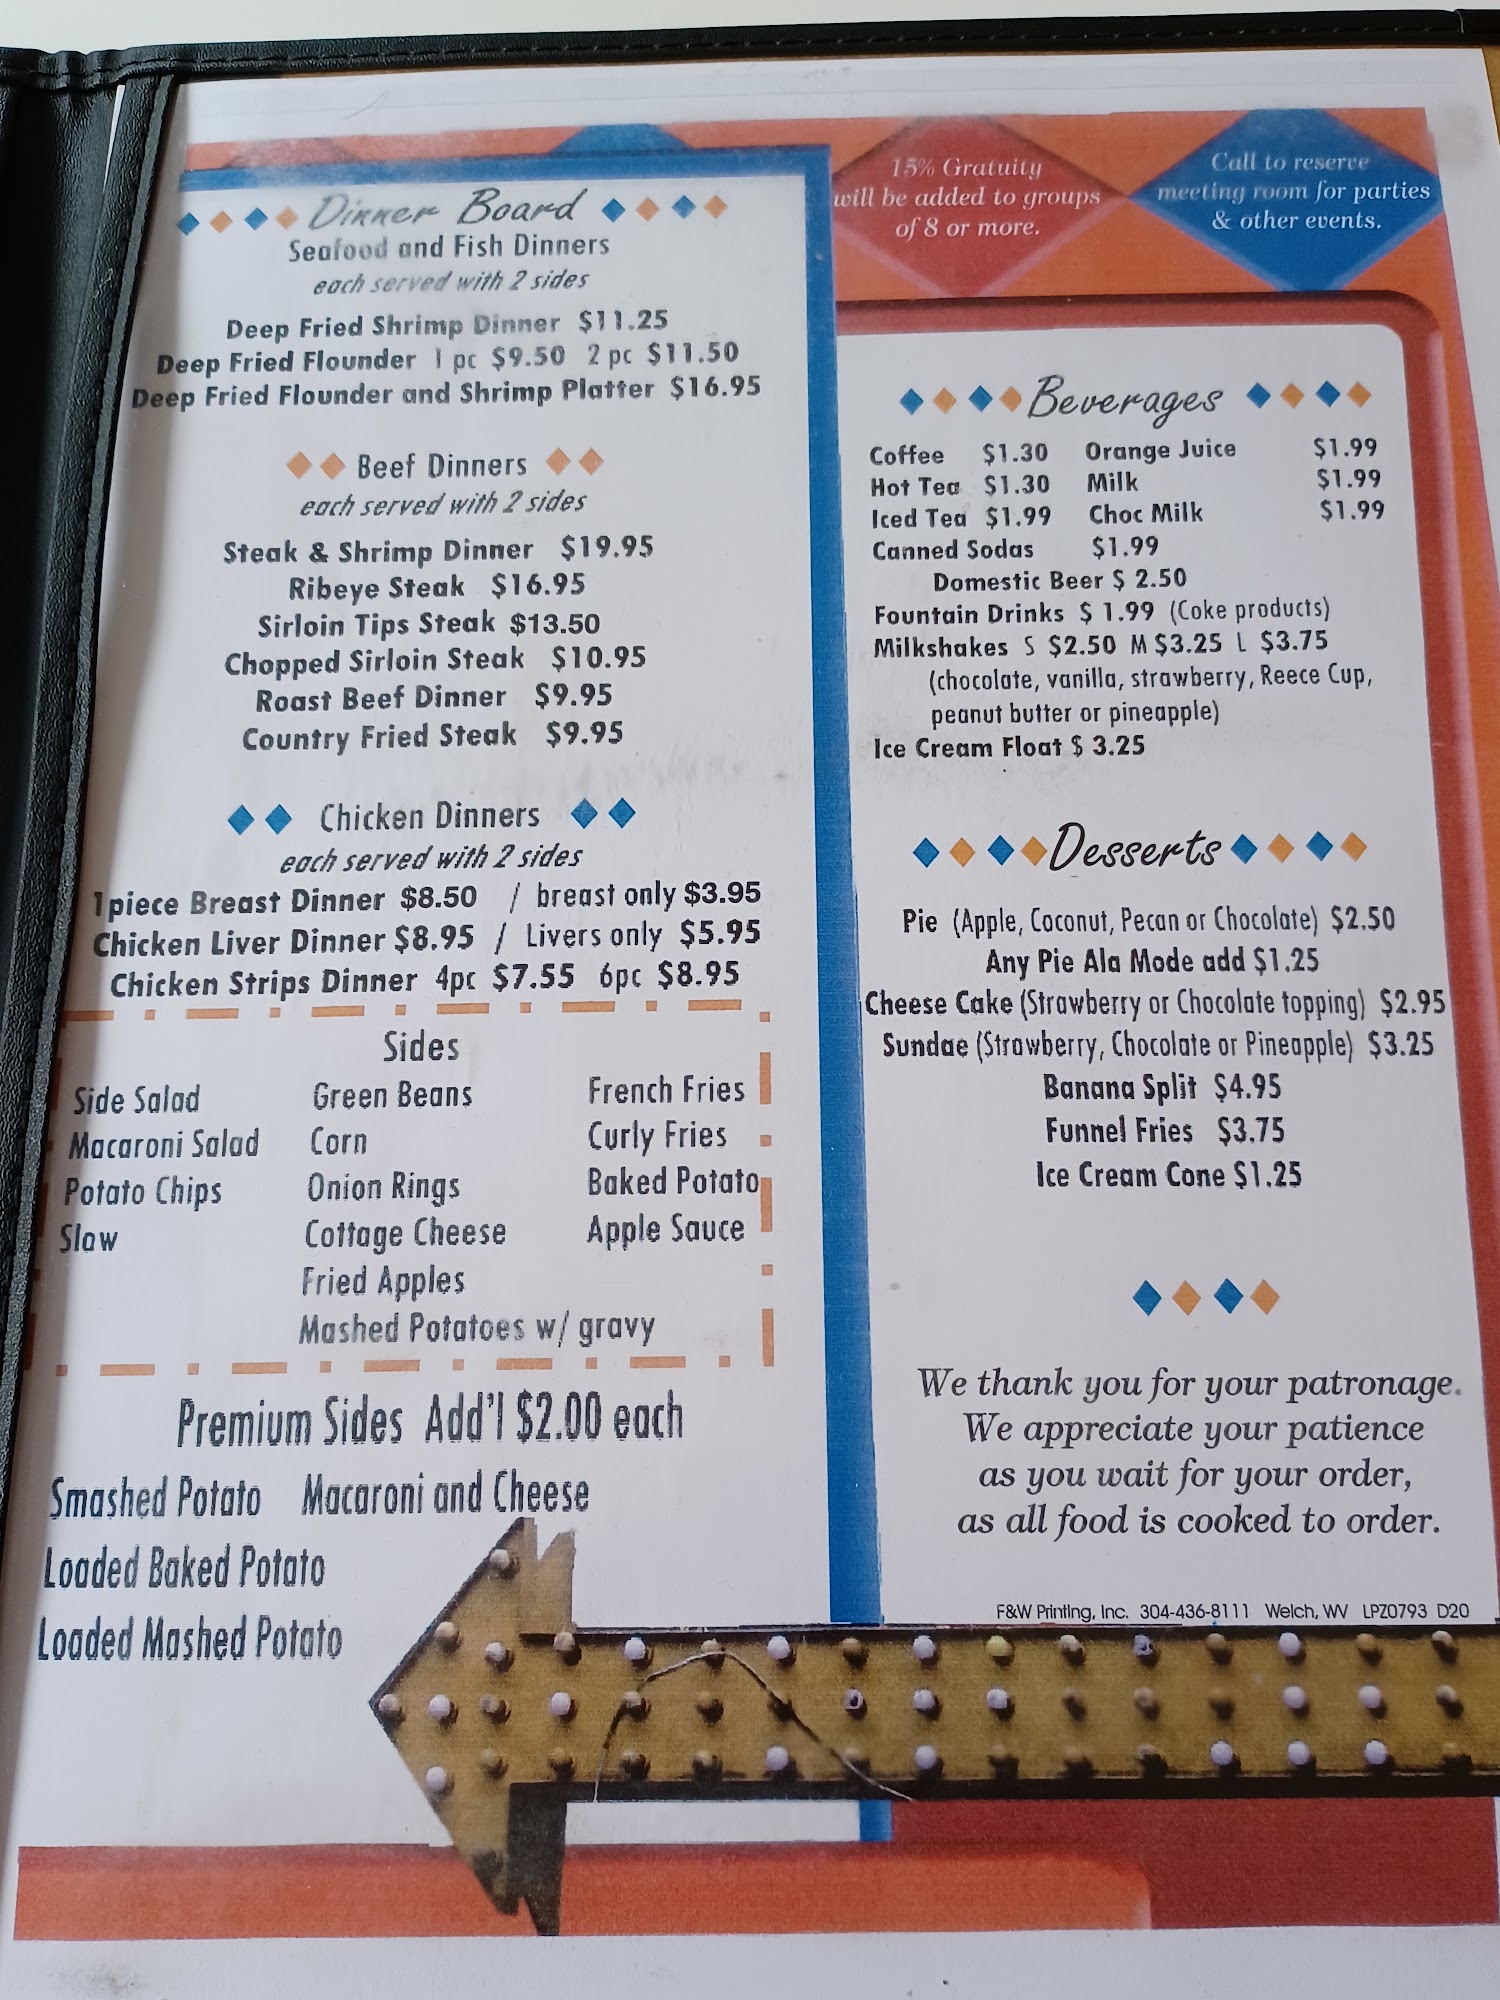 15% Gratuity
will be added to groups
of 8 or more.
Call to reserve
meeting room for parties
& other events.
Dinner Board
Seafood and Fish Dinners
each served with 2 sides
Deep Fried Shrimp Dinner $11.25
Deep Fried Flounder 1 pc $9.50 2 pc $11.50
Deep Fried Flounder and Shrimp Platter $16.95
Beef Dinners
each served with 2 sides
Steak & Shrimp Dinner $19.95
Ribeye Steak $16.95
Sirloin Tips Steak $13.50
Chopped Sirloin Steak $10.95
Roast Beef Dinner $9.95
Country Fried Steak $9.95
Chicken Dinners
each served with 2 sides
1piece Breast Dinner $8.50 / breast only $3.95
Chicken Liver Dinner $8.95 / Livers only $5.95
Chicken Strips Dinner 4pc $7.55 6pc $8.95
Sides
Side Salad Green Beans French Fries
Macaroni Salad Corn Curly Fries
Potato Chips Onion Rings Baked Potato
Slaw Cottage Cheese Apple Sauce
Fried Apples
Mashed Potatoes w/ gravy
Premium Sides Add'l $2.00 each
Smashed Potato Macaroni and Cheese
Loaded Baked Potato
Loaded Mashed Potato
Beverages
Coffee $1.30 Orange Juice $1.99
Hot Tea $1.30 Milk $1.99
Iced Tea $1.99 Choc Milk $1.99
Canned Sodas $1.99
Domestic Beer $ 2.50
Fountain Drinks $ 1.99 (Coke products)
Milkshakes S $2.50 M $3.25 L $3.75
(chocolate, vanilla, strawberry, Reece Cup,
peanut butter or pineapple)
Ice Cream Float $ 3.25
Desserts
Pie (Apple, Coconut, Pecan or Chocolate) $2.50
Any Pie Ala Mode add $1.25
Cheese Cake (Strawberry or Chocolate topping) $2.95
Sundae (Strawberry, Chocolate or Pineapple) $3.25
Banana Split $4.95
Funnel Fries $3.75
Ice Cream Cone $1.25
We thank you for your patronage.
We appreciate your patience
as you wait for your order,
as all food is cooked to order.
F&W Printing, Inc. 304-436-8111 Welch, WV LPZ0793 D20